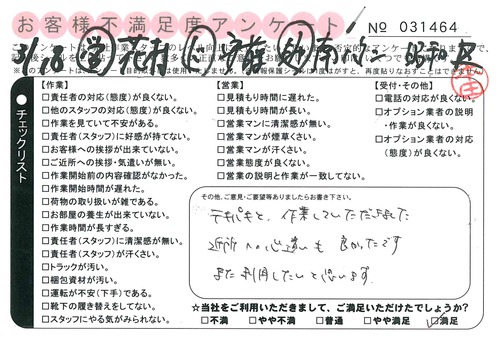 お客様不満足度アンケート
No 031464
チェックリスト
【作業】
□責任者の対応(態度)が良くない。
□他のスタッフの対応(態度)が良くない。
□作業を見ていて不安がある。
□責任者(スタッフ)に好感が持てない。
□お客様への挨拶が出来ていない。
□ご近所への挨拶・気遣いが無い。
□作業開始前の内容確認がなかった。
□作業開始時間が遅れた。
□荷物の取り扱いが雑である。
□お部屋の養生が出来ていない。
□作業時間が長すぎる。
□責任者(スタッフ)に清潔感が無い。
□責任者(スタッフ)が汗くさい。
□トラックが汚い。
□梱包資材が汚い。
□運転が不安(下手)である。
□靴下の履き替えをしてない。
□スタッフにやる気がみられない。
【営業】
□見積もり時間に遅れた。
□見積もり時間が長い。
□営業マンに清潔感が無い。
□営業マンが煙草くさい。
□営業マンが汗くさい。
□営業態度が良くない。
□営業の説明と作業が一致してない。
【受付・その他】
□電話の対応が良くない。
□オプション業者の説明
・作業が良くない。
□オプション業者の対応
(態度)が良くない。
その他、ご意見・ご要望等ありましたらお書き下さい。
テキパキと、作業していただきました
近所への心遣いも良かったです
また利用したいと思います.
☆当社をご利用いただきまして、ご満足いただけたでしょうか?
□不満 □やや不満 □普通 □やや満足 □満足